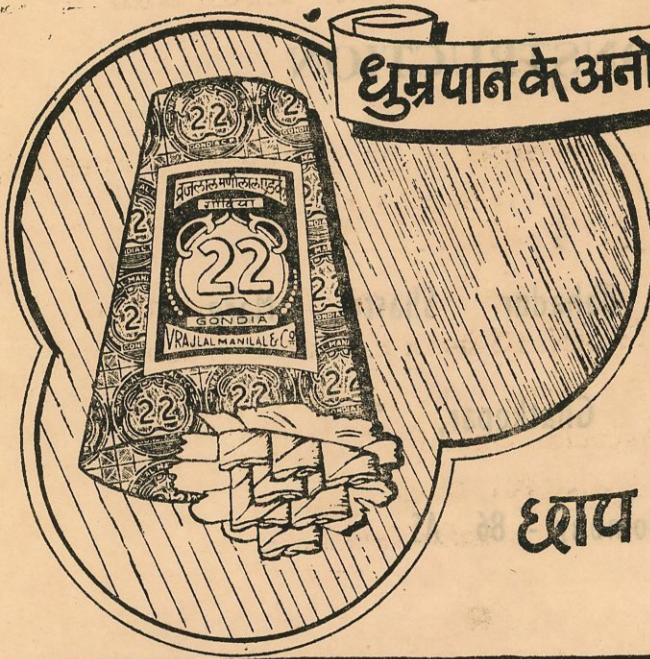 धुम्रपान के अनो
22
व्रजलाल मणीलाल एंड कं
गोंदिया
22
GONDIA
VRAJLAL MANILAL & Co
22
22
22
छाप